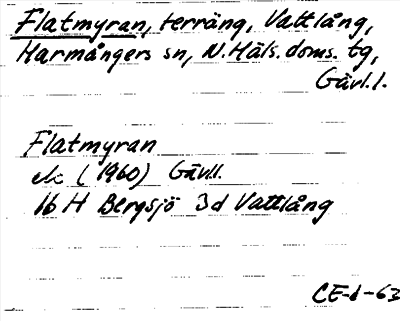 Flatmyran, terräng, Vattlång,
Harmångers sn, N. Häls. doms. tg,
Gävl. l.
Flatmyran
ek (1960) Gävl.l.
16 H Bergsjö 3d Vattlång
CE-1-63